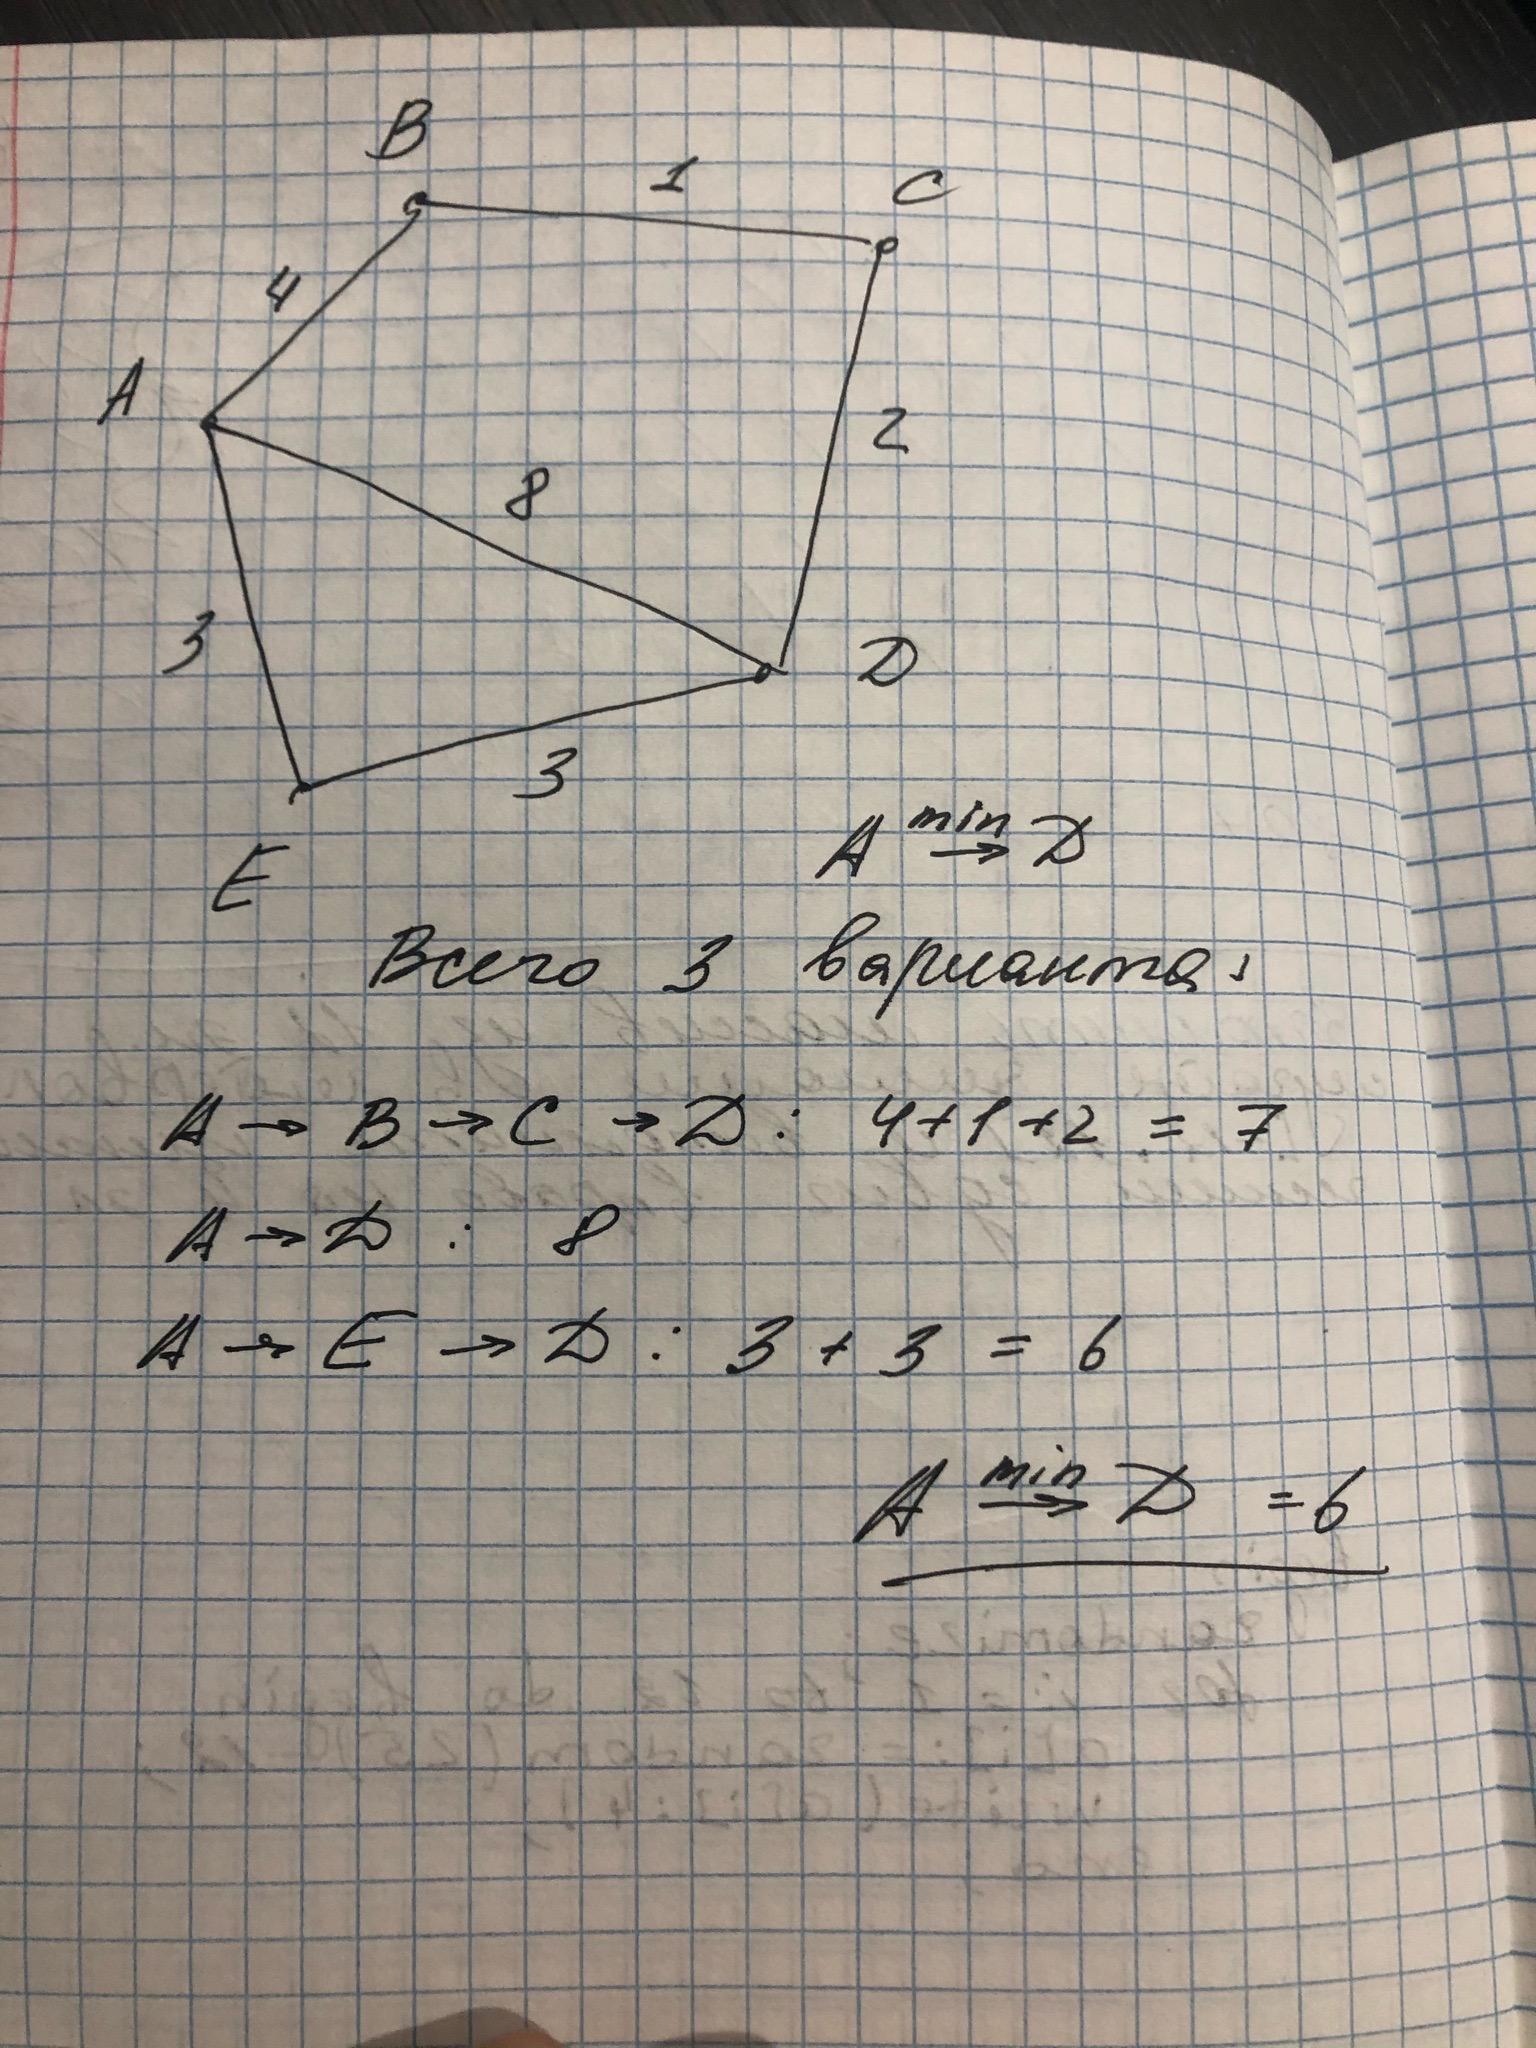 B
1
C
4
A
2
8
3
D
3
E
A min→ D
Всего 3 варианта:
A → B → C → D : 4+1+2 = 7
A → D : 8
A → E → D : 3 + 3 = 6
A min→ D = 6